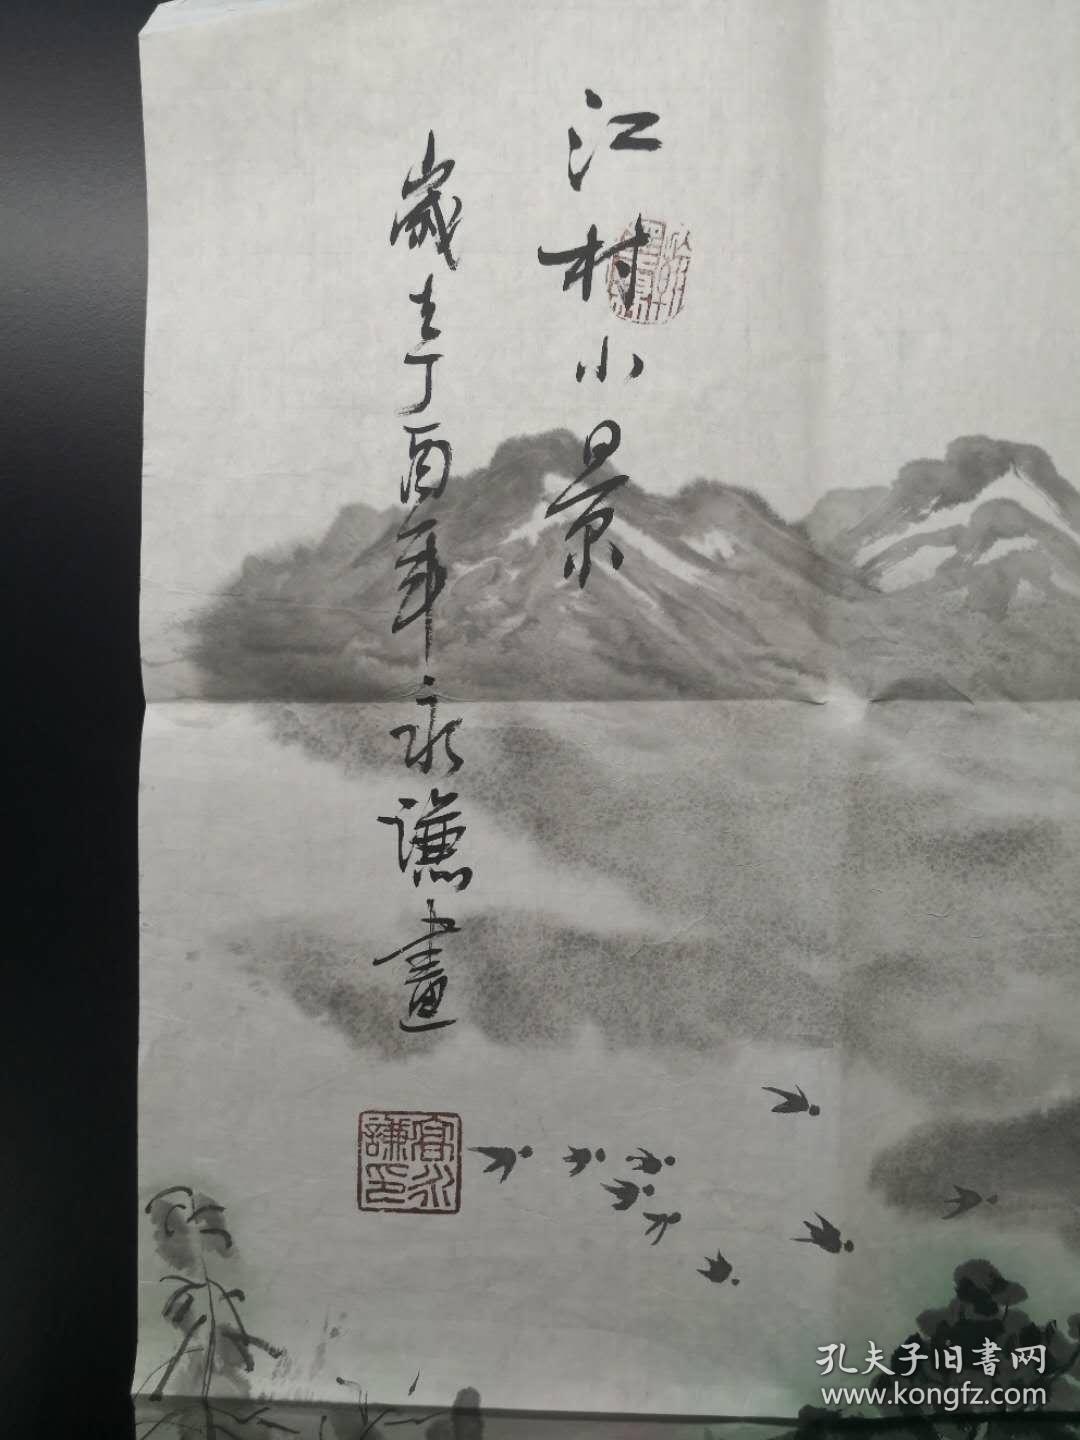 江村小景
歲在丁酉年永謙畫
高永謙印
孔夫子旧書网
www.kongfz.com